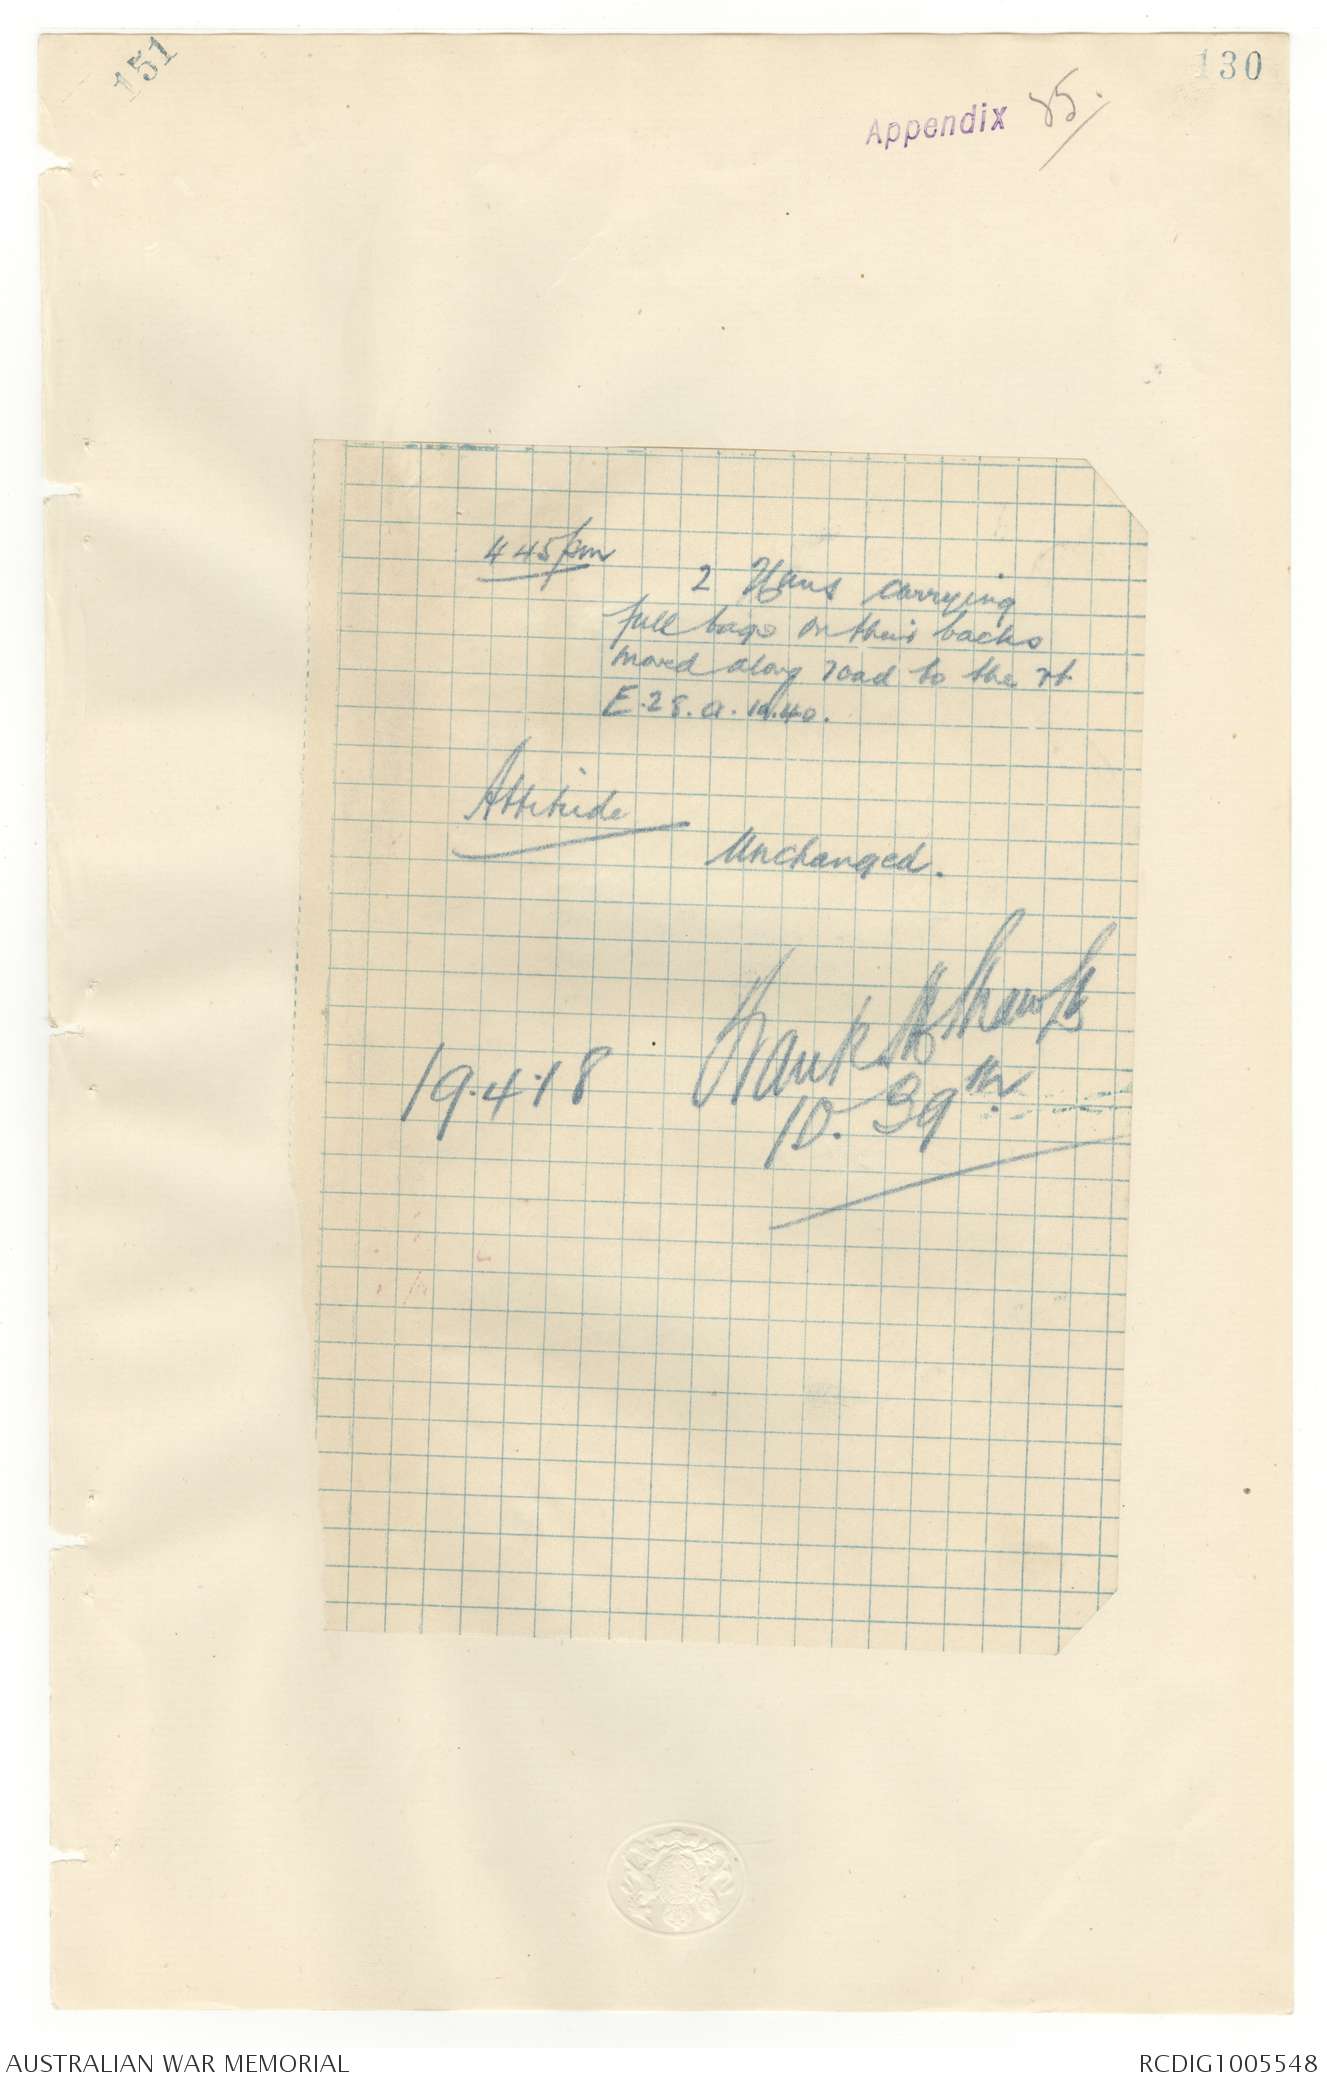 151
130
Appendix 85.
4 45 pm
2 Huns carrying
full bags on their backs
moved along road to the rt.
E.28.a.10.40.
Attitude
Unchanged.
19.4.18
Frank
IO. 39th
AUSTRALIAN WAR MEMORIAL
RCDIG1005548